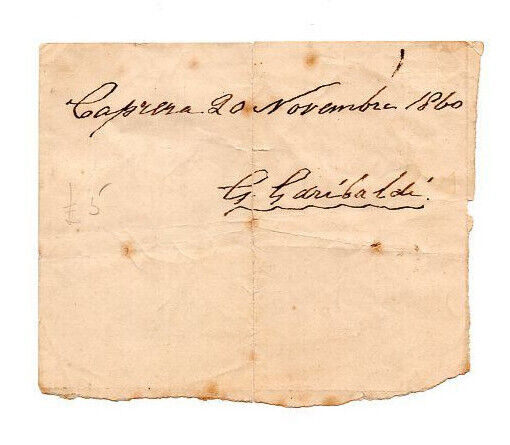 Caprera 20 Novembre 1860
G. Garibaldi.
£5